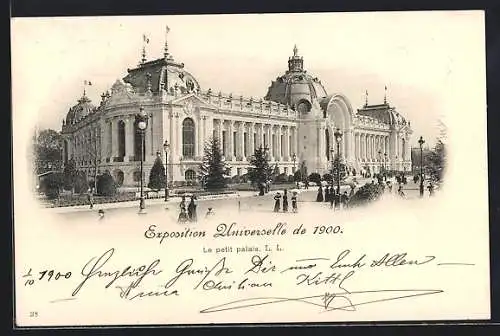 Exposition Universelle de 1900.
Le petit palais. L. L.
1/10 1900 Herzliche Grüsse Dir und Euch Allen.
Anna Kitty